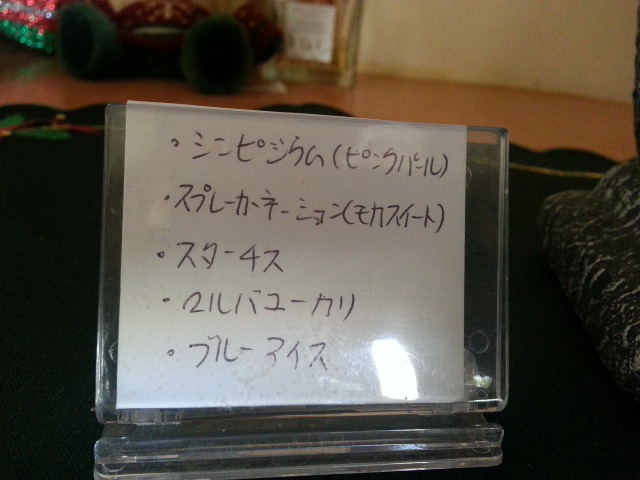 ・シンピジウム(ピンクパール)
・スプレーカーネーション(モカスイート)
・スターチス
・マルバユーカリ
・ブルーアイス